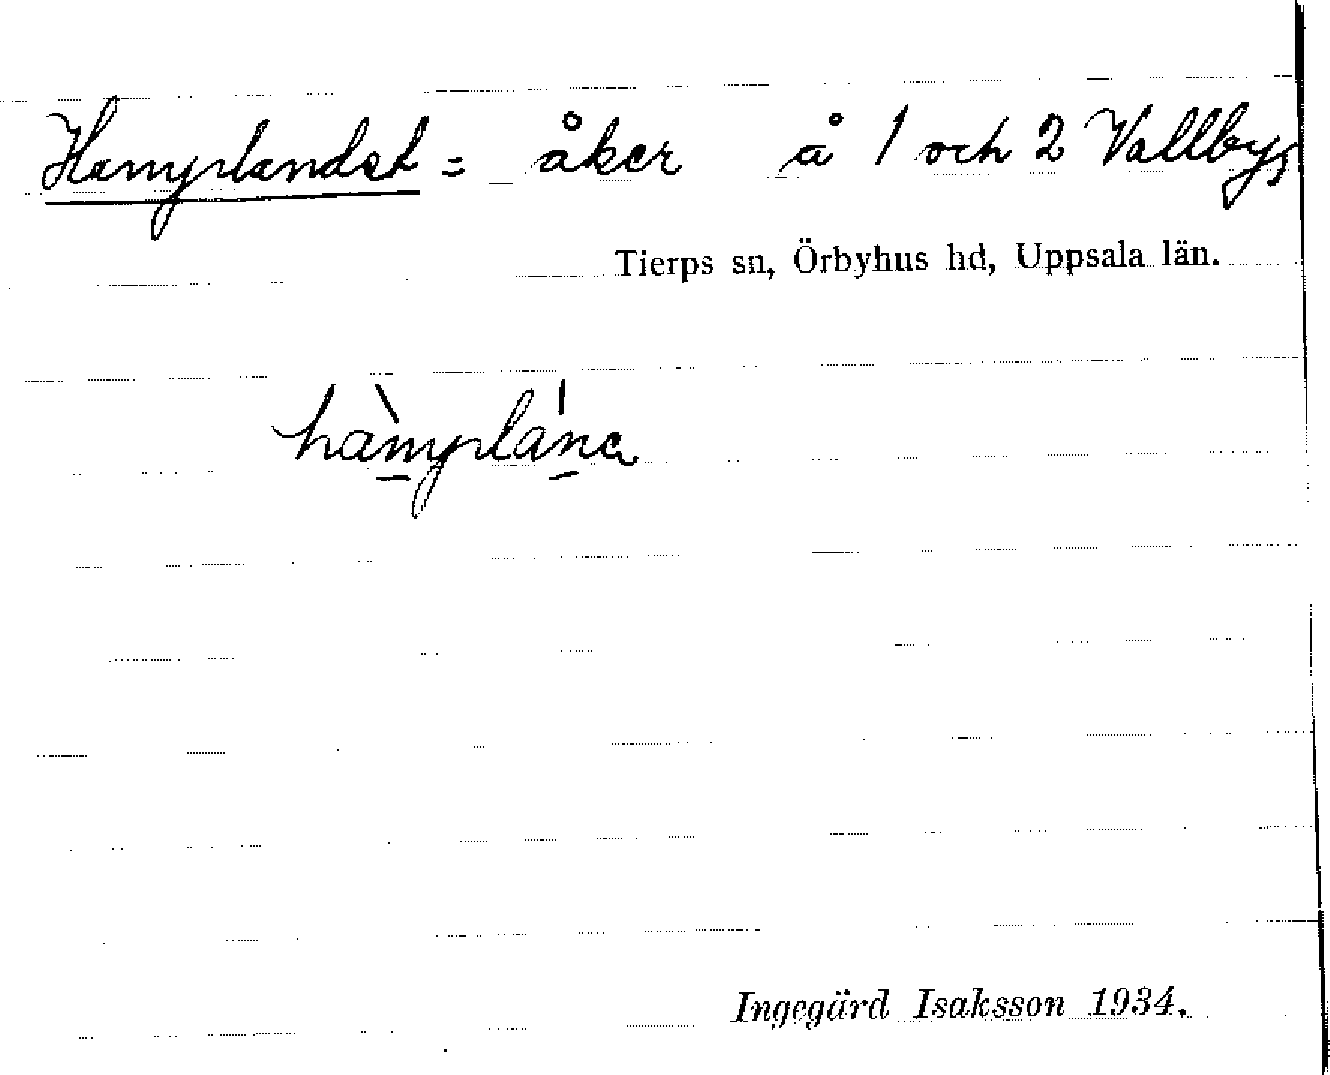 Hamplandet = åker å 1 och 2 Vallby,
Tierps sn, Örbyhus hd, Uppsala län.
hàmplána
Ingegärd Isaksson 1934.